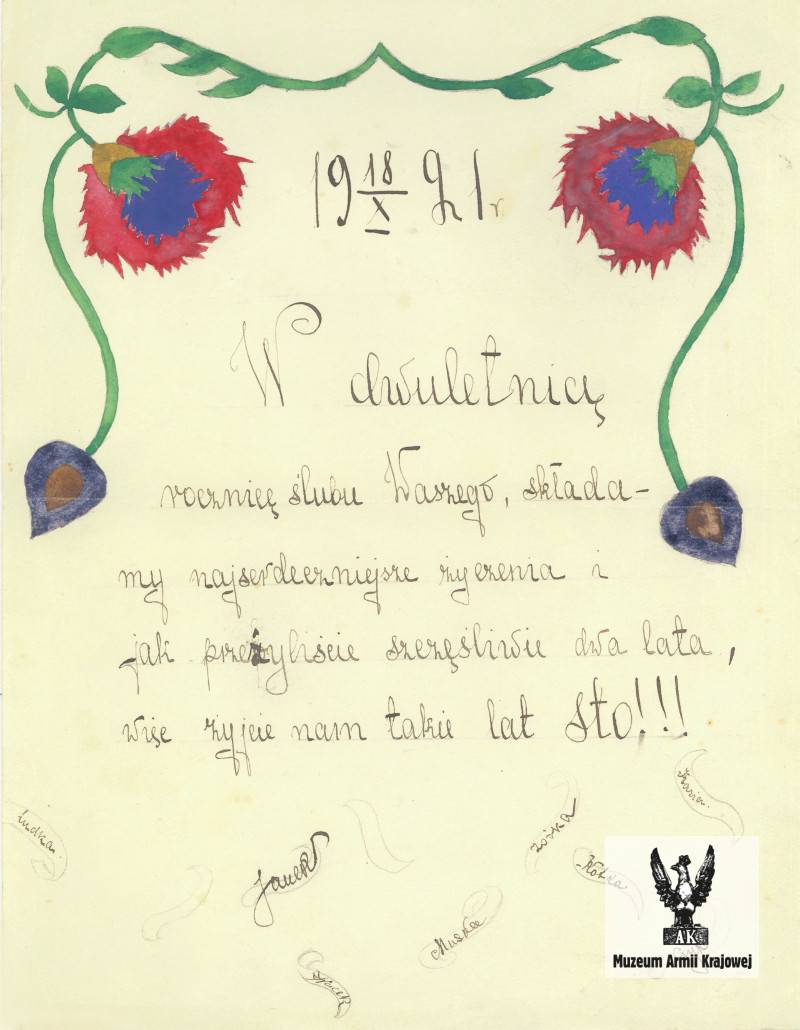 19 18/X 21 r
W dwuletnią
rocznicę ślubu Waszego, składa-
my najserdeczniejsze życzenia i
jak przeżyliście szczęśliwie dwa lata,
więc żyjcie nam takie lat sto!!!
Ludka.
Janek
Zośka
AK
Muzeum Armii Krajowej